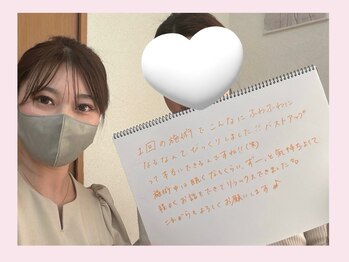 1回の施術でこんなにふわふわに
なるなんてびっくりしました!! バストアップ
ってすぐにできるんですね!!(笑)
施術中は眠くなるくらい、ずーっと気持ちよくて
様々お話もできてリラックスできました
これからもよろしくお願いします♪